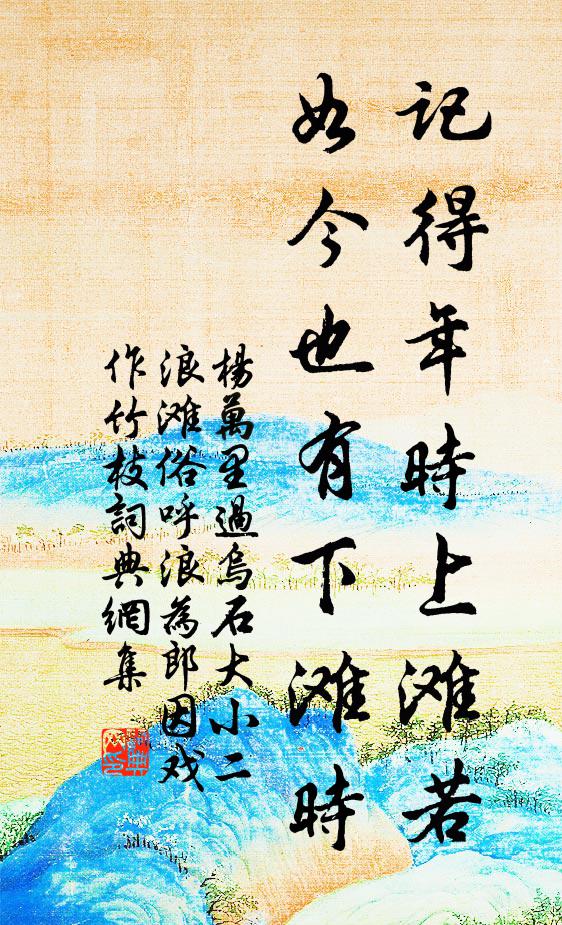 记得年時上滩若
如今也有下滩時
楊萬里過烏石大小二
浪滩俗呼浪為郎因戏
作竹枝詞典網集